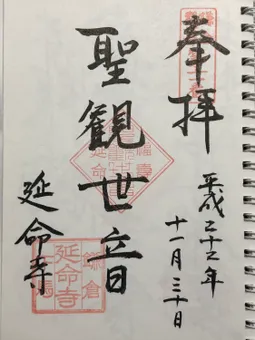 奉拝
平成二十三年
十一月三十日
聖観世音
延命寺
鎌倉
延命寺